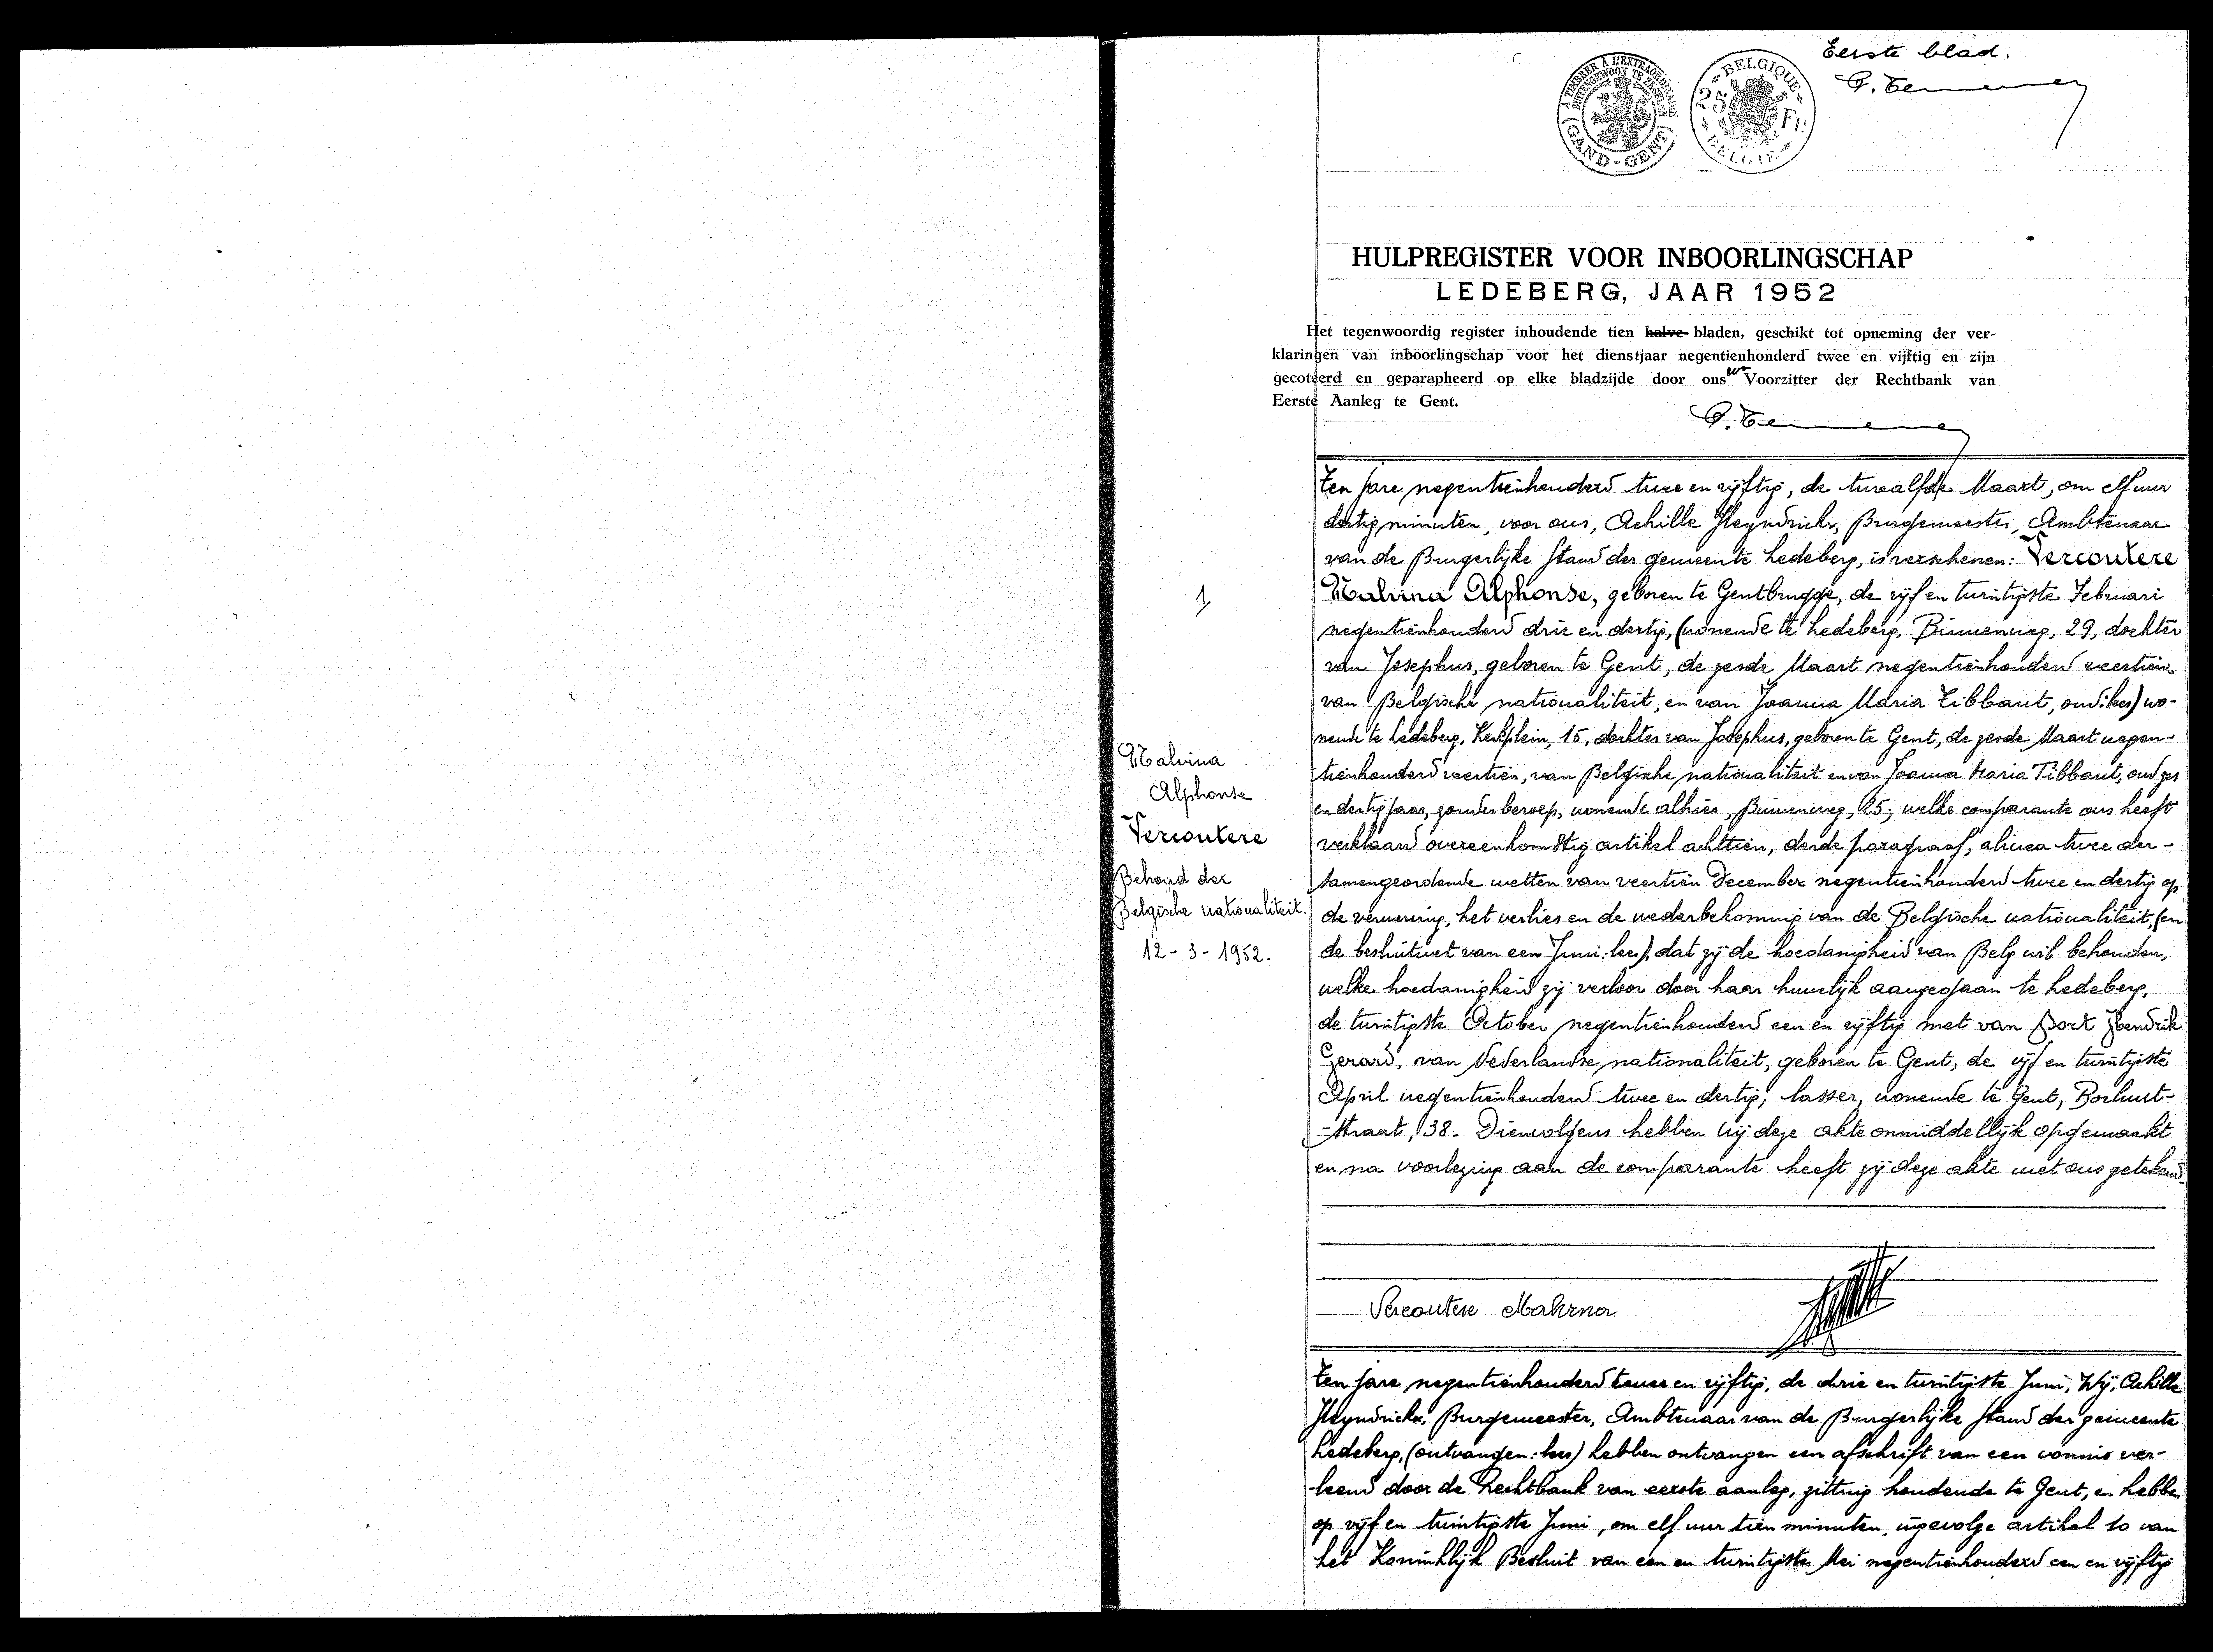 Eerste blad.
À TIMBRER À L'EXTRAORDINAIRE
BUITENGEWOON TE ZEGELEN
(GAND-GENT)
BELGIQUE
25 Fr
BELGIË
HULPREGISTER VOOR INBOORLINGSCHAP
LEDEBERG, JAAR 1952
Het tegenwoordig register inhoudende tien halve bladen, geschikt tot opneming der ver-
klaringen van inboorlingschap voor het dienstjaar negentienhonderd twee en vijftig en zijn
gecoteerd en geparapheerd op elke bladzijde door ons Voorzitter der Rechtbank van
Eerste Aanleg te Gent.
1
Malvina
Alphonse
Vercoutere
Behoud der
Belgische nationaliteit.
12-3-1952.
Ten jare negentienhonderd twee en vijftig, de twaalfde Maart, om elf uur
dertig minuten, voor ons, Achille Heyndrickx, Burgemeester, Ambtenaar
van de Burgerlijke Stand der gemeente Ledeberg, is verschenen: Vercoutere
Malvina Alphonse, geboren te Gentbrugge, de vijf en twintigste Februari
negentienhonderd drie en dertig, (wonende te Ledeberg, Binnenweg, 29, dochter
van Josephus, geboren te Gent, de zesde Maart negentienhonderd veertien
van Belgische nationaliteit, en van Joanna Maria Tibbaut, oud: lees) wo-
nende te Ledeberg, Kerkplein, 15, dochter van Josephus, geboren te Gent, de zesde Maart negen-
tienhonderd veertien, van Belgische nationaliteit en van Joanna Maria Tibbaut, oud zes
en dertig jaar, zonder beroep, wonende alhier, Binnenweg, 25; welke comparante ons heeft
verklaard overeenkomstig artikel achttien, derde paragraaf, alinea twee der-
samengeordende wetten van veertien December negentienhonderd twee en dertig op
de verwerving, het verlies en de wederbekoming van de Belgische nationaliteit, (en
de besluitwet van een Juni: lees), dat zij de hoedanigheid van Belg wil behouden,
welke hoedanigheid zij verloor door haar huwelijk aangegaan te Ledeberg,
de twintigste October negentienhonderd een en vijftig met van Hendrik
Gerard, van Nederlandse nationaliteit, geboren te Gent, de vijf en twintigste
April negentienhonderd twee en dertig, lasser, wonende te Gent, Borluut-
-straat, 38. Dienvolgens hebben wij deze akte onmiddellijk opgemaakt
en na voorlezing aan de comparante heeft zij deze akte met ons getekend.
Vercoutere Malvina
Ten jare negentienhonderd twee en vijftig, de drie en twintigste Juni, Wij, Achille
Heyndrickx, Burgemeester, Ambtenaar van de Burgerlijke Stand der gemeente
Ledeberg, (ontvangen: lees) hebben ontvangen een afschrift van een vonnis ver-
leend door de Rechtbank van eerste aanleg, zitting houdende te Gent, en hebben
op vijf en twintigste Juni, om elf uur tien minuten, ingevolge artikel 10 van
het Koninklijk Besluit van een en twintigste Mei negentienhonderd een en vijftig